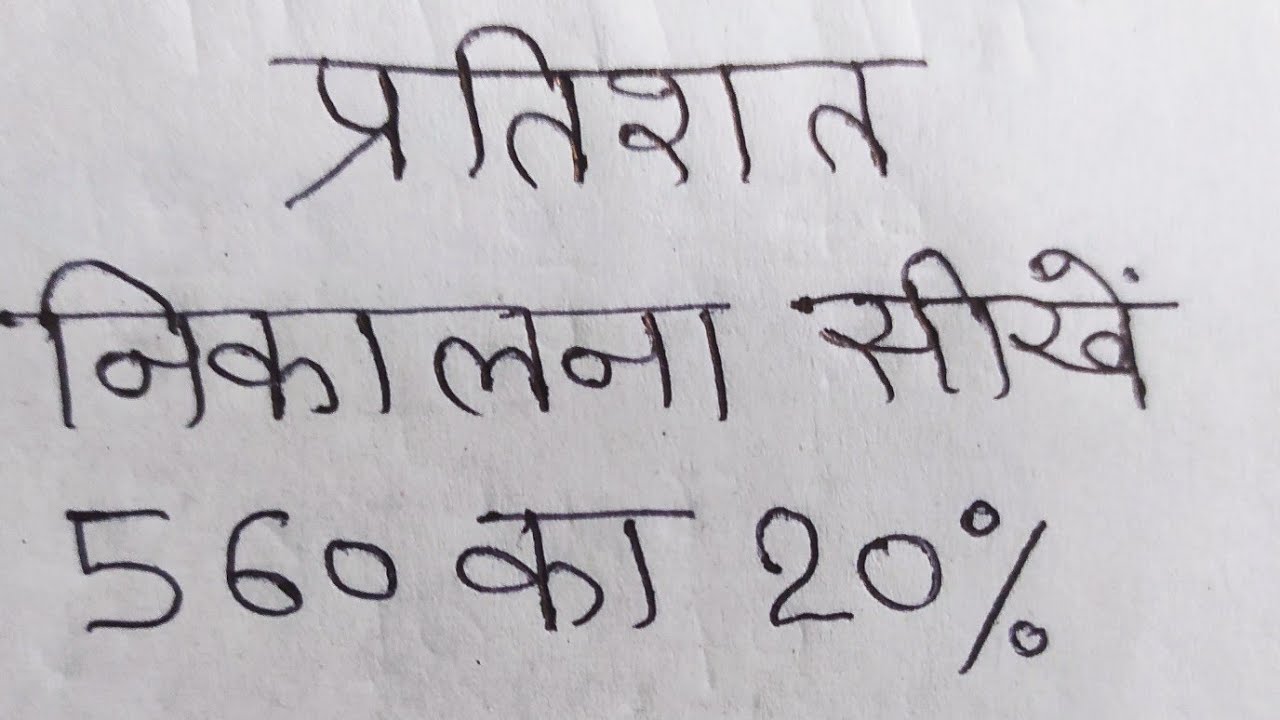 प्रतिशत
निकालना सीखें
560 का 20%